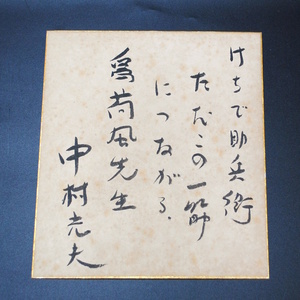 けちで助兵衛
ただこの一筋
につながる、
為荷風先生
中村光夫